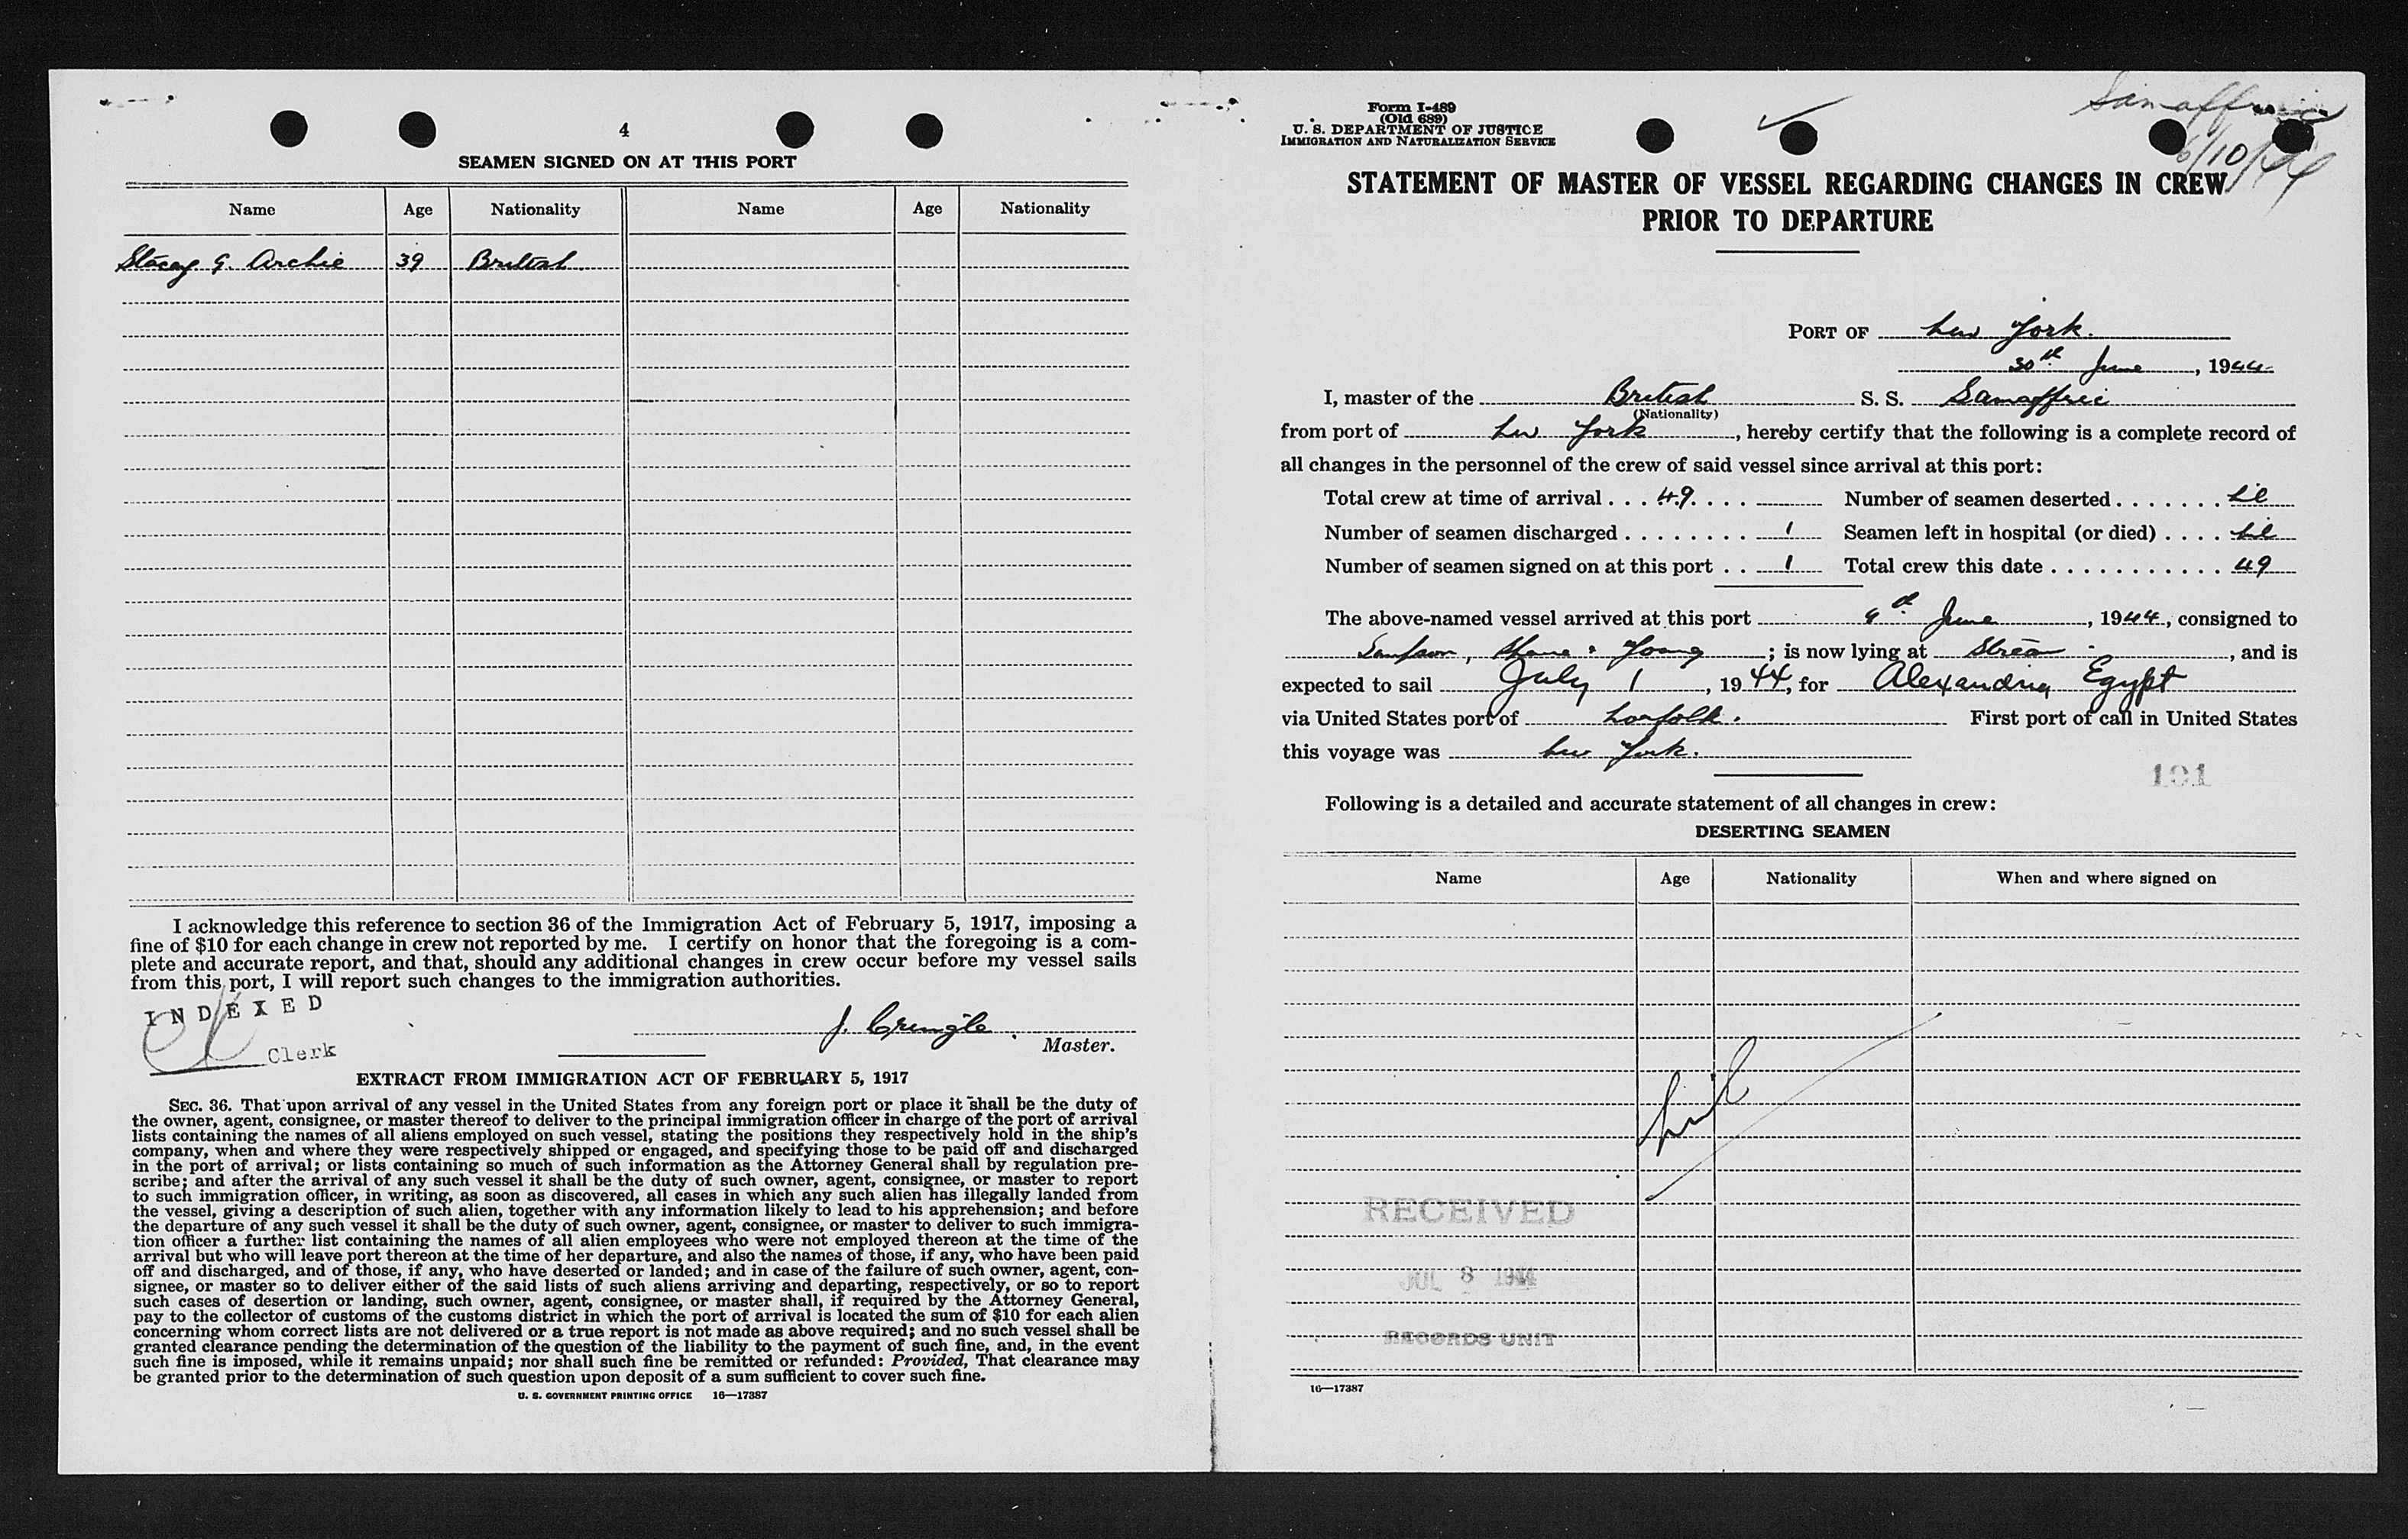 4
SEAMEN SIGNED ON AT THIS PORT
Name Age Nationality Name Age Nationality
Stacey G. Archie 39 British
I acknowledge this reference to section 36 of the Immigration Act of February 5, 1917, imposing a
fine of $10 for each change in crew not reported by me. I certify on honor that the foregoing is a com-
plete and accurate report, and that, should any additional changes in crew occur before my vessel sails
from this port, I will report such changes to the immigration authorities.
INDEXED
Clerk
J. Cringle.
Master.
EXTRACT FROM IMMIGRATION ACT OF FEBRUARY 5, 1917
SEC. 36. That upon arrival of any vessel in the United States from any foreign port or place it shall be the duty of
the owner, agent, consignee, or master thereof to deliver to the principal immigration officer in charge of the port of arrival
lists containing the names of all aliens employed on such vessel, stating the positions they respectively hold in the ship's
company, when and where they were respectively shipped or engaged, and specifying those to be paid off and discharged
in the port of arrival; or lists containing so much of such information as the Attorney General shall by regulation pre-
scribe; and after the arrival of any such vessel it shall be the duty of such owner, agent, consignee, or master to report
to such immigration officer, in writing, as soon as discovered, all cases in which any such alien has illegally landed from
the vessel, giving a description of such alien, together with any information likely to lead to his apprehension; and before
the departure of any such vessel it shall be the duty of such owner, agent, consignee, or master to deliver to such immigra-
tion officer a further list containing the names of all alien employees who were not employed thereon at the time of the
arrival but who will leave port thereon at the time of her departure, and also the names of those, if any, who have been paid
off and discharged, and of those, if any, who have deserted or landed; and in case of the failure of such owner, agent, con-
signee, or master so to deliver either of the said lists of such aliens arriving and departing, respectively, or so to report
such cases of desertion or landing, such owner, agent, consignee, or master shall, if required by the Attorney General,
pay to the collector of customs of the customs district in which the port of arrival is located the sum of $10 for each alien
concerning whom correct lists are not delivered or a true report is not made as above required; and no such vessel shall be
granted clearance pending the determination of the question of the liability to the payment of such fine, and, in the event
such fine is imposed, while it remains unpaid; nor shall such fine be remitted or refunded: Provided, That clearance may
be granted prior to the determination of such question upon deposit of a sum sufficient to cover such fine.
U. S. GOVERNMENT PRINTING OFFICE 16—17387
Form I-489
(Old 689)
U. S. DEPARTMENT OF JUSTICE
IMMIGRATION AND NATURALIZATION SERVICE
Samaffric
6/10/44
STATEMENT OF MASTER OF VESSEL REGARDING CHANGES IN CREW
PRIOR TO DEPARTURE
PORT OF New York.
30th June, 1944
I, master of the British S. S. Samaffric
(Nationality)
from port of New York, hereby certify that the following is a complete record of
all changes in the personnel of the crew of said vessel since arrival at this port:
Total crew at time of arrival . . . 49. . . . Number of seamen deserted . . . . . . . Nil
Number of seamen discharged . . . . . . . . 1 Seamen left in hospital (or died) . . . . Nil
Number of seamen signed on at this port . . 1 Total crew this date . . . . . . . . . . . 49
The above-named vessel arrived at this port 9th June, 1944, consigned to
Young; is now lying at Stream, and is
expected to sail July 1, 1944, for Alexandria Egypt
via United States port of Norfolk. First port of call in United States
this voyage was New York.
191
Following is a detailed and accurate statement of all changes in crew:
DESERTING SEAMEN
Name Age Nationality When and where signed on
Nil
RECEIVED
JUL 8 1944
RECORDS UNIT
16—17387